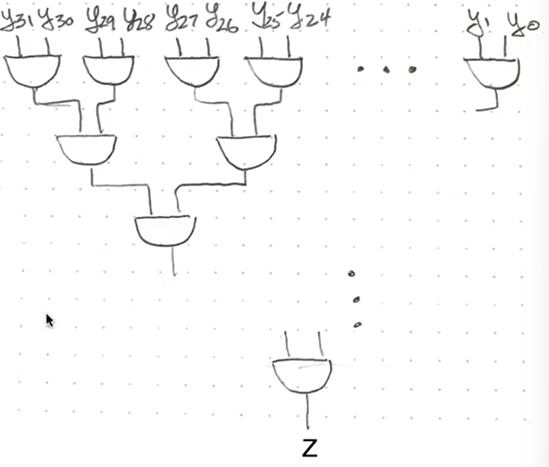 y31 y30 y29 y28 y27 y26 y25 y24 y1 y0
Z